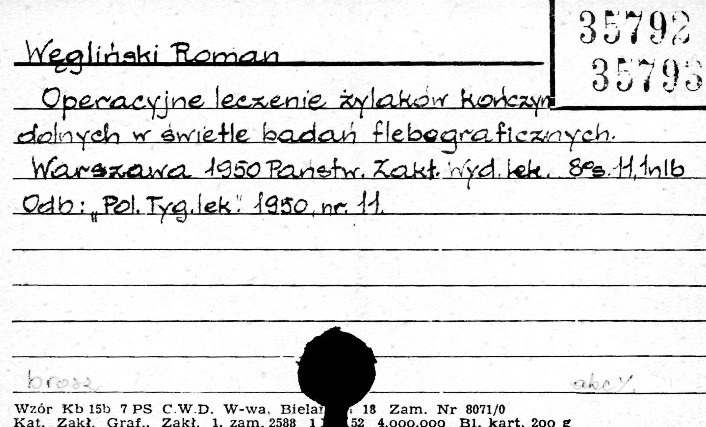 35792
35793
Węgliński Roman
Operacyjne leczenie żylaków kończyn
dolnych w świetle badań flebograficznych.
Warszawa 1950 Państw. Zakł. Wyd. lek. 8es. 11, 1nlb
Odb: „Pol. Tyg. lek." 1950, nr. 11.
brosz.
Wzór Kb 15b 7 PS C.W.D. W-wa, 18 Zam. Nr 8071/0
Kat. Zakł. Graf., Zakł. 1, zam. 2588 52 4.000.000 Bl. kart. 200 g